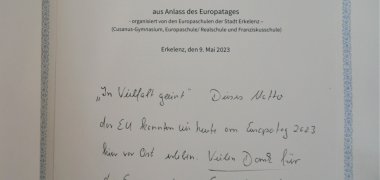 aus Anlass des Europatages
- organisiert von den Europaschulen der Stadt Erkelenz -
(Cusanus-Gymnasium, Europaschule/ Realschule und Franziskusschule)
Erkelenz, den 9. Mai 2023
„In Vielfalt geeint“ Dieses Motto
der EU konnten wir heute am Europatag 2023
hier vor Ort erleben. Vielen Dank für